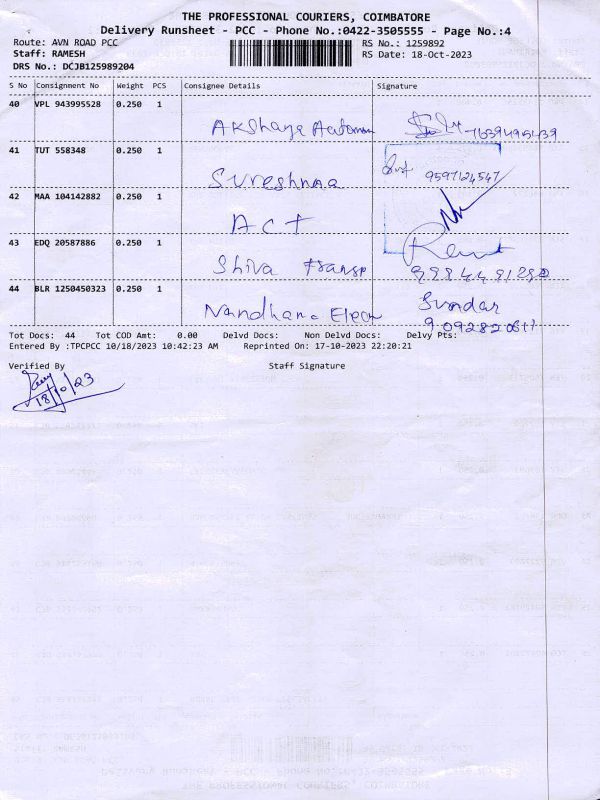 THE PROFESSIONAL COURIERS, COIMBATORE
Delivery Runsheet - PCC - Phone No.:0422-3505555 - Page No.:4
Route: AVN ROAD PCC RS No.: 1259892
Staff: RAMESH RS Date: 18-Oct-2023
DRS No.: DCJB125989204
S No Consignment No Weight PCS Consignee Details Signature
40 VPL 943995528 0.250 1
Akshaya
41 TUT 558348 0.250 1
9597124547
42 MAA 104142882 0.250 1
ACT
43 EDQ 20587886 0.250 1
Shiva Transp
44 BLR 1250450323 0.250 1 Sundar
Nandhana
Tot Docs: 44 Tot COD Amt: 0.00 Delvd Docs: Non Delvd Docs: Delvy Pts:
Entered By :TPCPCC 10/18/2023 10:42:23 AM Reprinted On: 17-10-2023 22:20:21
Verified By Staff Signature
18/10/23